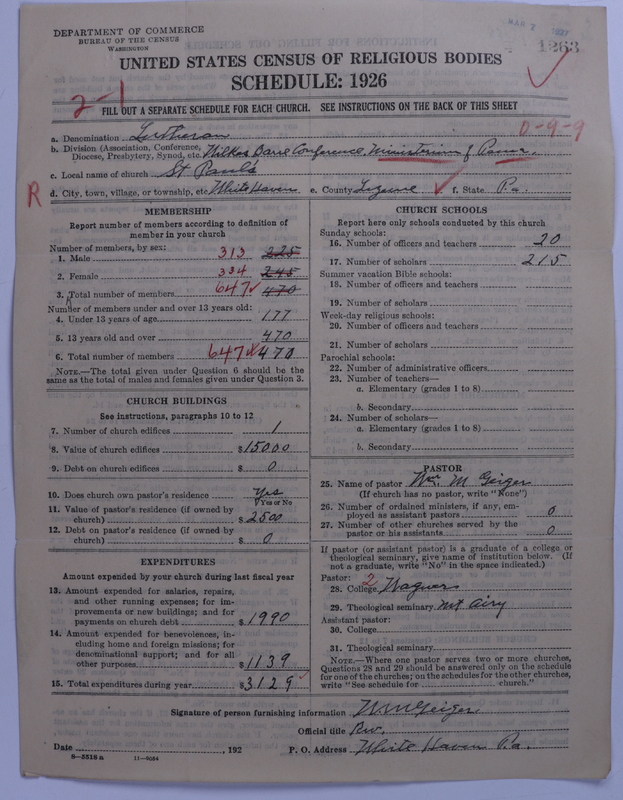 DEPARTMENT OF COMMERCE
BUREAU OF THE CENSUS
WASHINGTON
MAR 2 1927
1263
UNITED STATES CENSUS OF RELIGIOUS BODIES
SCHEDULE: 1926
2-1
FILL OUT A SEPARATE SCHEDULE FOR EACH CHURCH. SEE INSTRUCTIONS ON THE BACK OF THIS SHEET
0-9-9
a. Denomination Lutheran
b. Division (Association, Conference, Diocese, Presbytery, Synod, etc. Wilkes Barre Conference, Ministerium of Penna.
c. Local name of church St Paul's
R
d. City, town, village, or township, etc White Haven e. County Luzerne f. State Pa.
MEMBERSHIP
Report number of members according to definition of
member in your church
Number of members, by sex:
1. Male 313 225
2. Female 334 245
3. Total number of members 647 470
Number of members under and over 13 years old:
4. Under 13 years of age 177
5. 13 years old and over 470
6. Total number of members 647 470
NOTE.—The total given under Question 6 should be
same as the total of males and females given under Question 3.
CHURCH BUILDINGS
See instructions, paragraphs 10 to 12
7. Number of church edifices 1
8. Value of church edifices $15000
9. Debt on church edifices $ 0
10. Does church own pastor's residence Yes
(Yes or No
11. Value of pastor's residence (if owned by
church) $ 2500
12. Debt on pastor's residence (if owned by
church) $ 0
EXPENDITURES
Amount expended by your church during last fiscal year
13. Amount expended for salaries, repairs,
and other running expenses; for im-
provements or new buildings; and for
payments on church debt $1990
14. Amount expended for benevolences, in-
cluding home and foreign missions; for
denominational support; and for all
other purposes $1139
15. Total expenditures during year $3129
CHURCH SCHOOLS
Report here only schools conducted by this church
Sunday schools:
16. Number of officers and teachers 20
17. Number of scholars 215
Summer vacation Bible schools:
18. Number of officers and teachers
19. Number of scholars
Week-day religious schools:
20. Number of officers and teachers
21. Number of scholars
Parochial schools:
22. Number of administrative officers
23. Number of teachers—
a. Elementary (grades 1 to 8)
b. Secondary
24. Number of scholars—
a. Elementary (grades 1 to 8)
b. Secondary
PASTOR
25. Name of pastor Wm M Geiger
(If church has no pastor, write "None")
26. Number of ordained ministers, if any, em-
ployed as assistant pastors 0
27. Number of other churches served by the
pastor or his assistants 0
If pastor (or assistant pastor) is a graduate of a college or
theological seminary, give name of institution below. (If
not a graduate, write "No" in the space indicated.)
Pastor:
28. College 2 Wagner
29. Theological seminary Mt Airy
Assistant pastor:
30. College
31. Theological seminary
NOTE.—Where one pastor serves two or more churches,
Questions 28 and 29 should be answered only on the schedule
for one of the churches; on the schedules for the other churches,
write "See schedule for church."
Signature of person furnishing information Wm M Geiger
Official title Rev.
Date , 192 P. O. Address White Haven Pa.
8—5518 a 11—9054